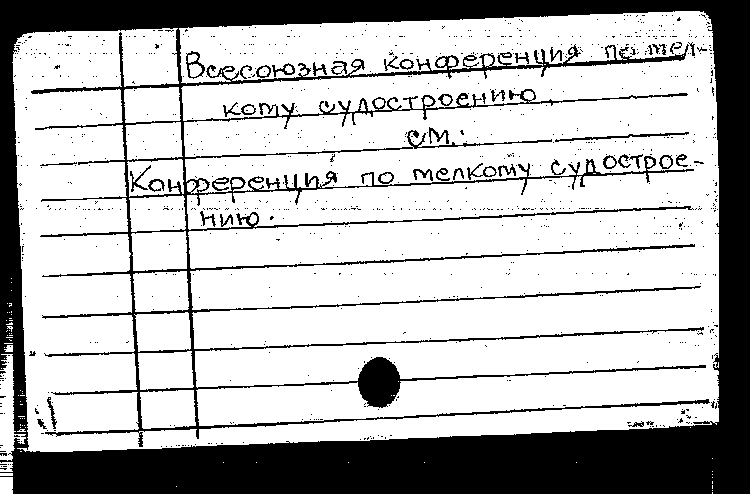 Всесоюзная конференция по мел-
кому судостроению,
см.:
Конференция по мелкому судострое-
нию.